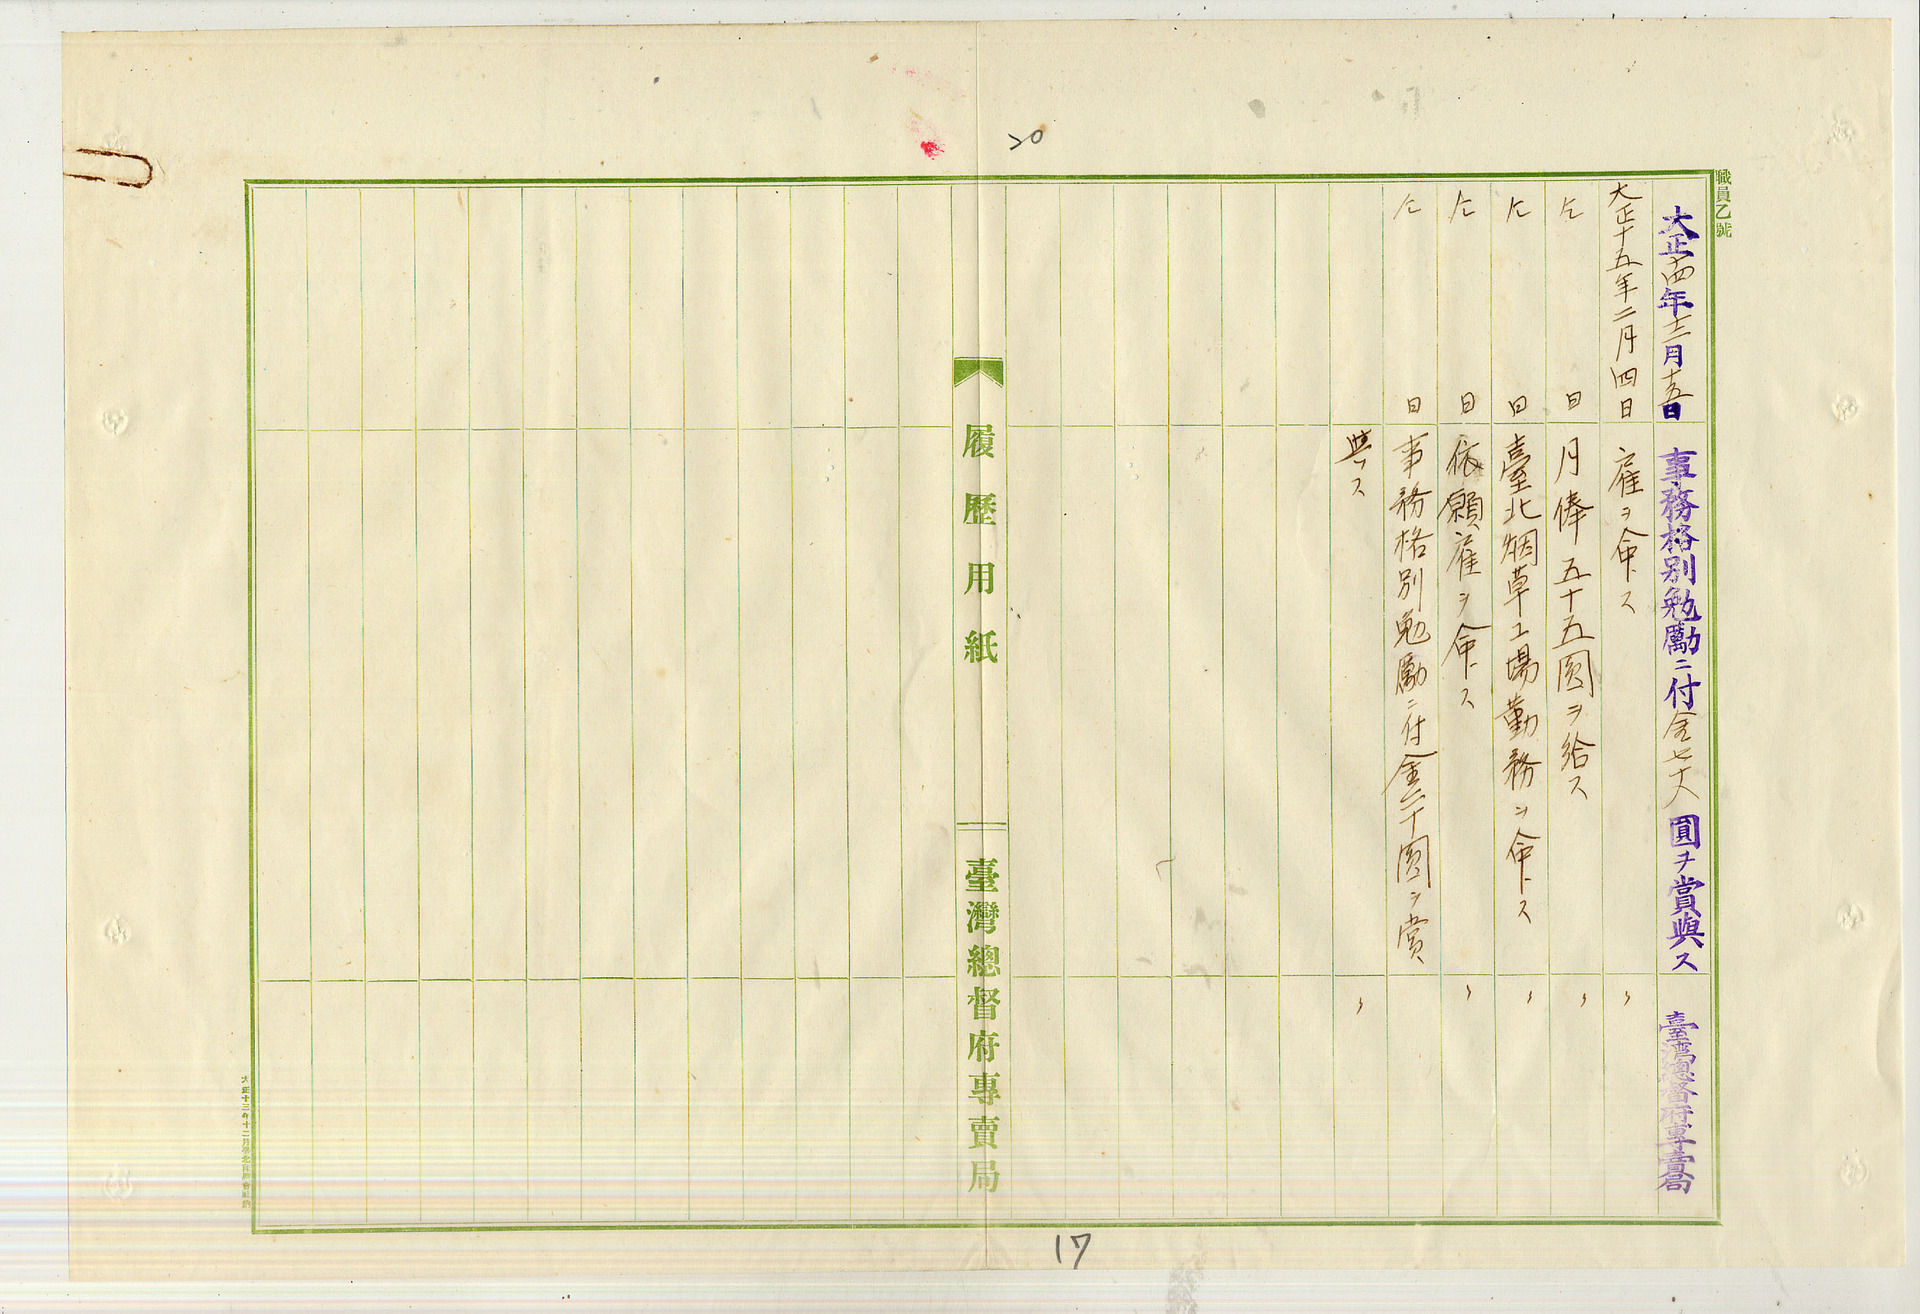 職員乙號
大正十四年十二月十五日 事務格別勉勵ニ付金七十八圓ヲ賞與ス 臺灣總督府專賣局
大正十五年二月四日 雇ヲ命ス 〃
仝 日 月俸五十五圓ヲ給ス 〃
仝 日 臺北烟草工場勤務ヲ命ス 〃
仝 日 依願雇ヲ命ス 〃
仝 日 事務格別勉勵ニ付金六十圓ヲ賞
與ス 〃
履歷用紙
臺灣總督府專賣局
20
17